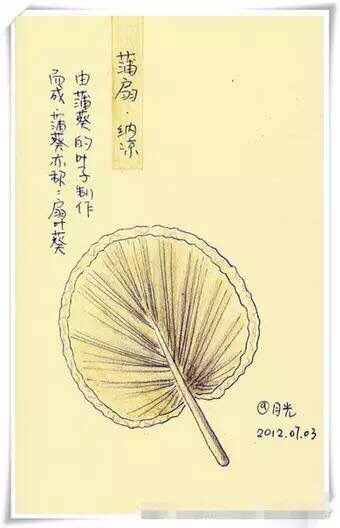 蒲扇·纳凉
由蒲葵的叶子制作
而成·蒲葵亦称:扇叶葵
@月光
2012.07.03